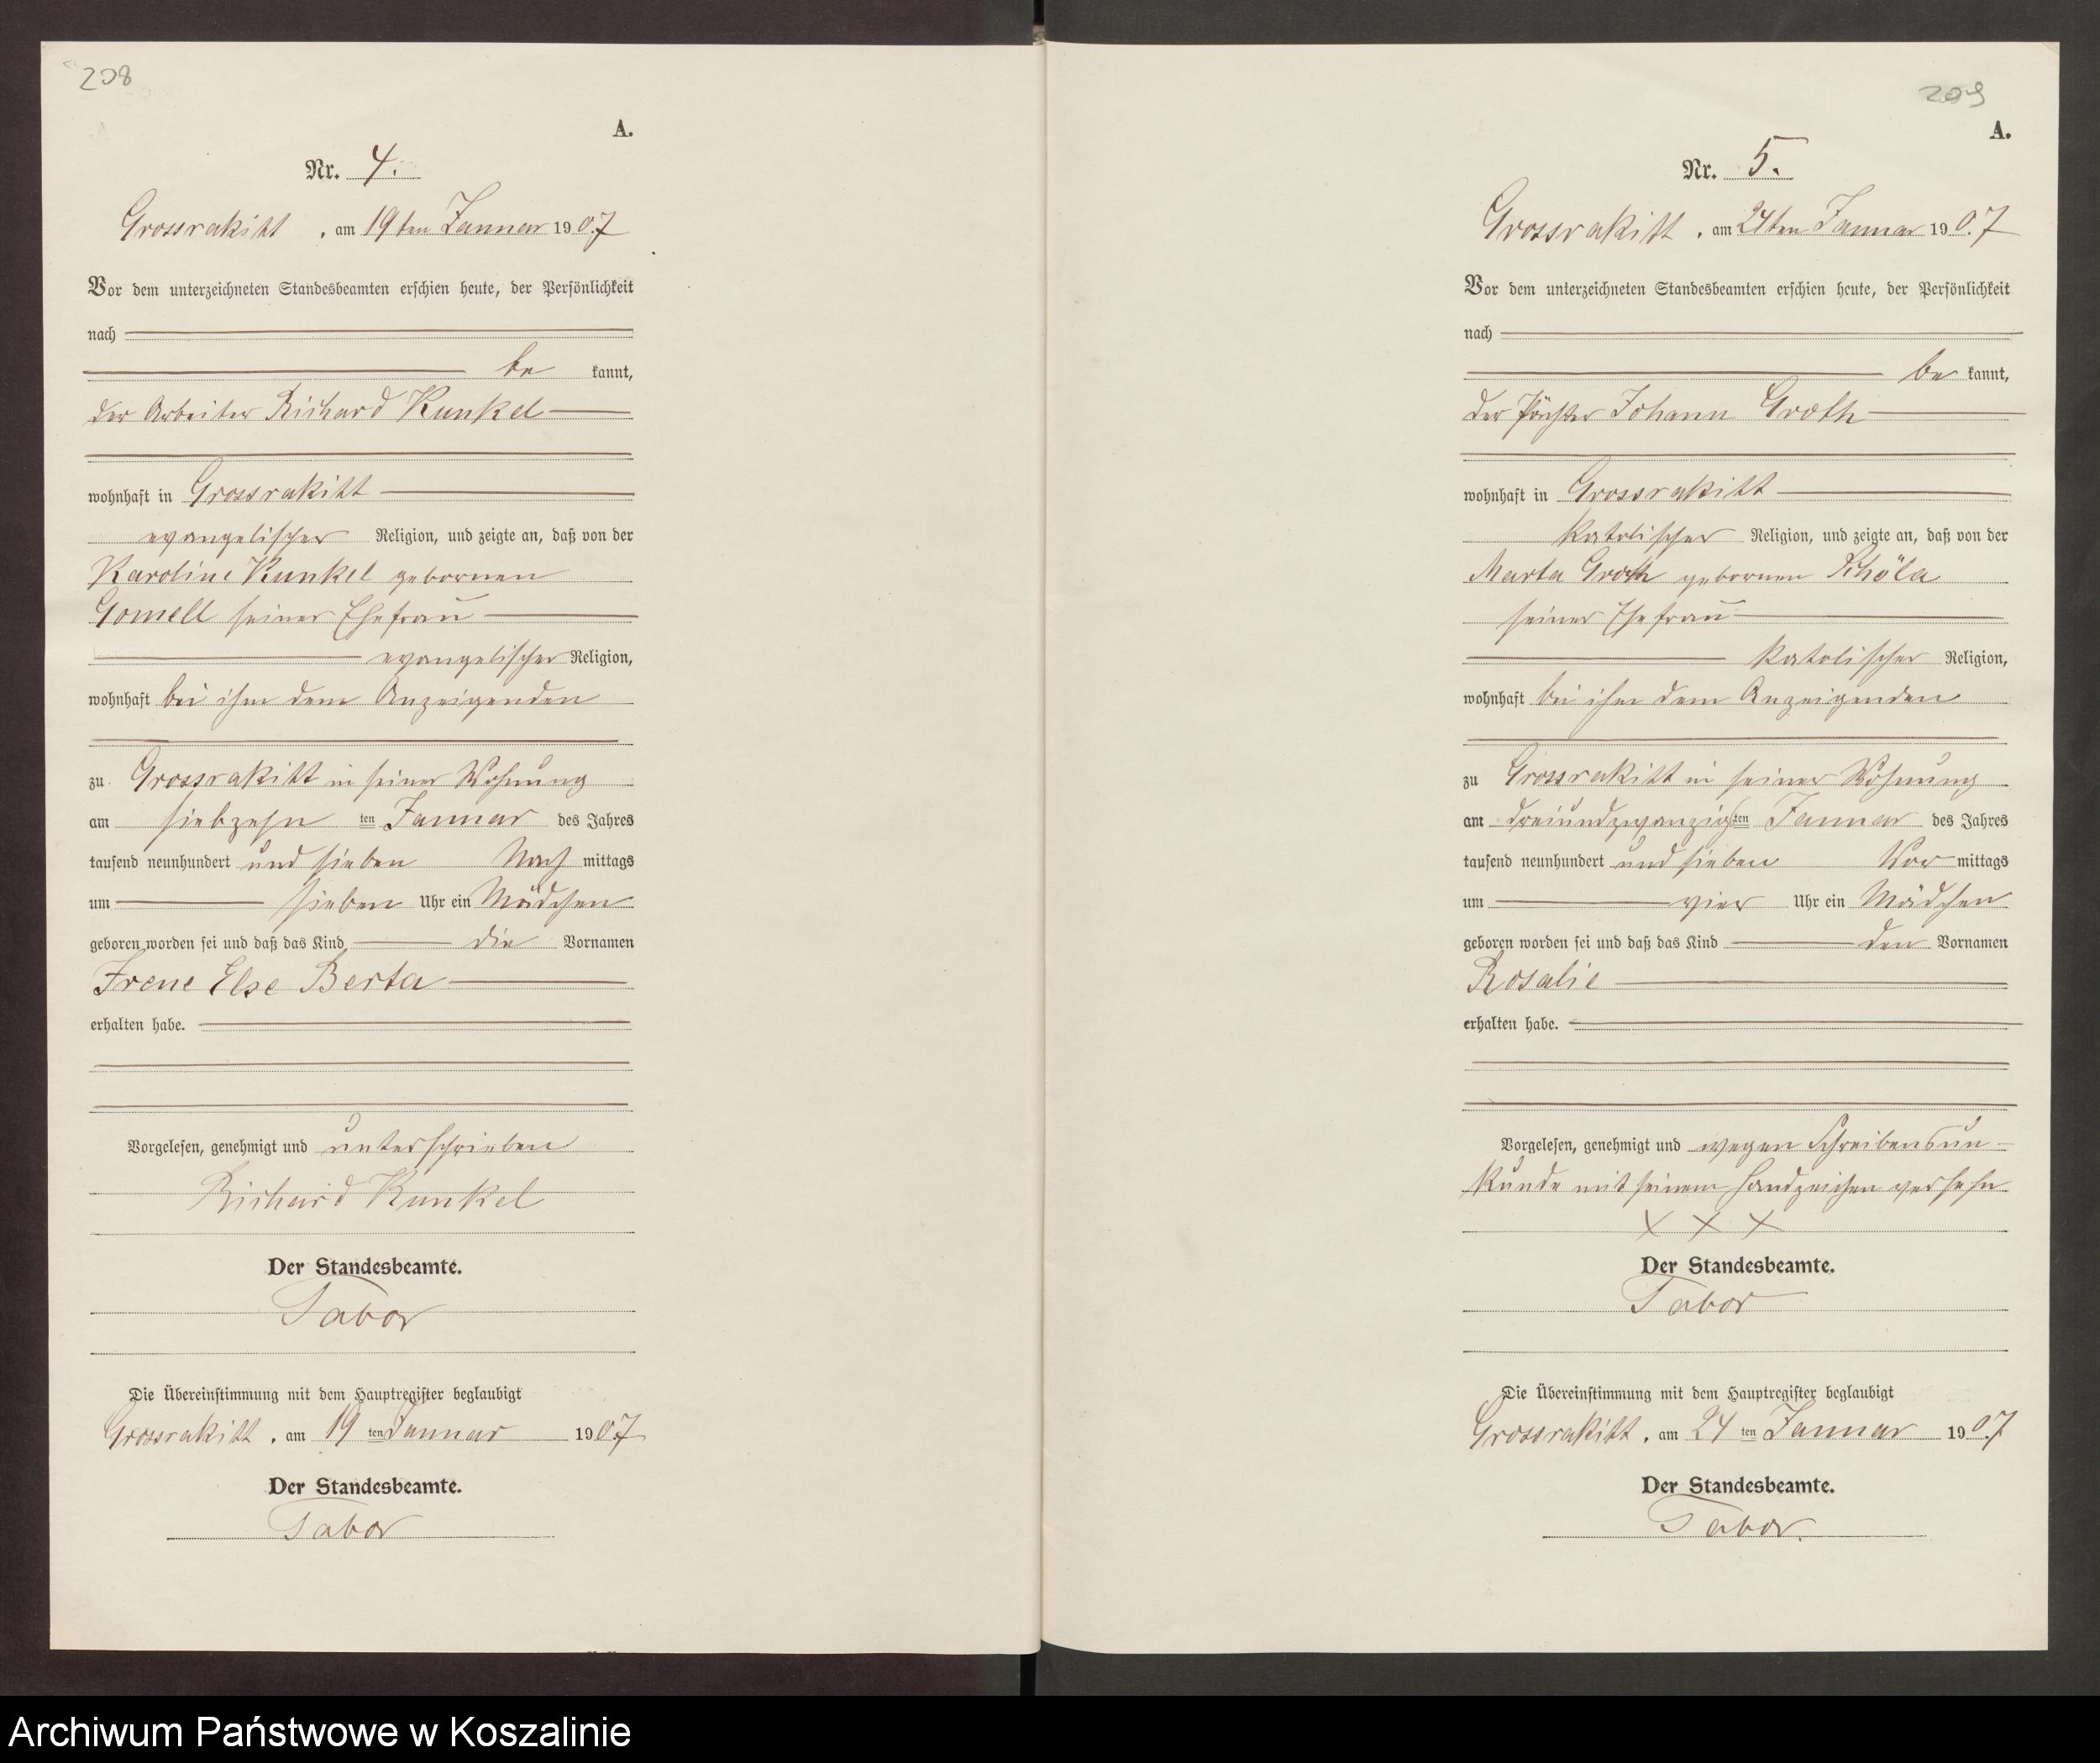 208
A.
Nr. 4.
Grossrakitt, am 19ten Januar 1907
Vor dem unterzeichneten Standesbeamten erschien heute, der Persönlichkeit
nach
be kannt,
der Arbeiter Richard Kunkel
wohnhaft in Grossrakitt
evangelischer Religion, und zeigte an, daß von der
Karoline Kunkel gebornen
Gomell seiner Ehefrau
evangelischer Religion,
wohnhaft bei ihm dem Anzeigenden
zu Grossrakitt in seiner Wohnung
am siebzehn ten Januar des Jahres
tausend neunhundert und sieben Nach mittags
um sieben Uhr ein Mädchen
geboren worden sei und daß das Kind die Vornamen
Irene Else Berta
erhalten habe.
Vorgelesen, genehmigt und unterschrieben
Richard Kunkel
Der Standesbeamte.
Tabor
Die Übereinstimmung mit dem Hauptregister beglaubigt
Grossrakitt, am 19 ten Januar 1907
Der Standesbeamte.
Tabor
209
A.
Nr. 5.
Grossrakitt, am 24ten Januar 190.7
Vor dem unterzeichneten Standesbeamten erschien heute, der Persönlichkeit
nach
be kannt,
der Johann Groth
wohnhaft in Grossrakitt
katolischer Religion, und zeigte an, daß von der
Marta Groth gebornen
seiner Ehefrau
katolischer Religion,
wohnhaft bei ihm dem Anzeigenden
zu Grossrakitt in seiner Wohnung
am dreiundzwanzigsten Januar des Jahres
tausend neunhundert und sieben Vor mittags
um vier Uhr ein Mädchen
geboren worden sei und daß das Kind den Vornamen
Rosalie
erhalten habe.
Vorgelesen, genehmigt und wegen Schreibensun-
kunde mit seinem Handzeichen versehn
X X X
Der Standesbeamte.
Tabor
Die Übereinstimmung mit dem Hauptregister beglaubigt
Grossrakitt, am 24 ten Januar 190.7
Der Standesbeamte.
Tabor.
Archiwum Państwowe w Koszalinie